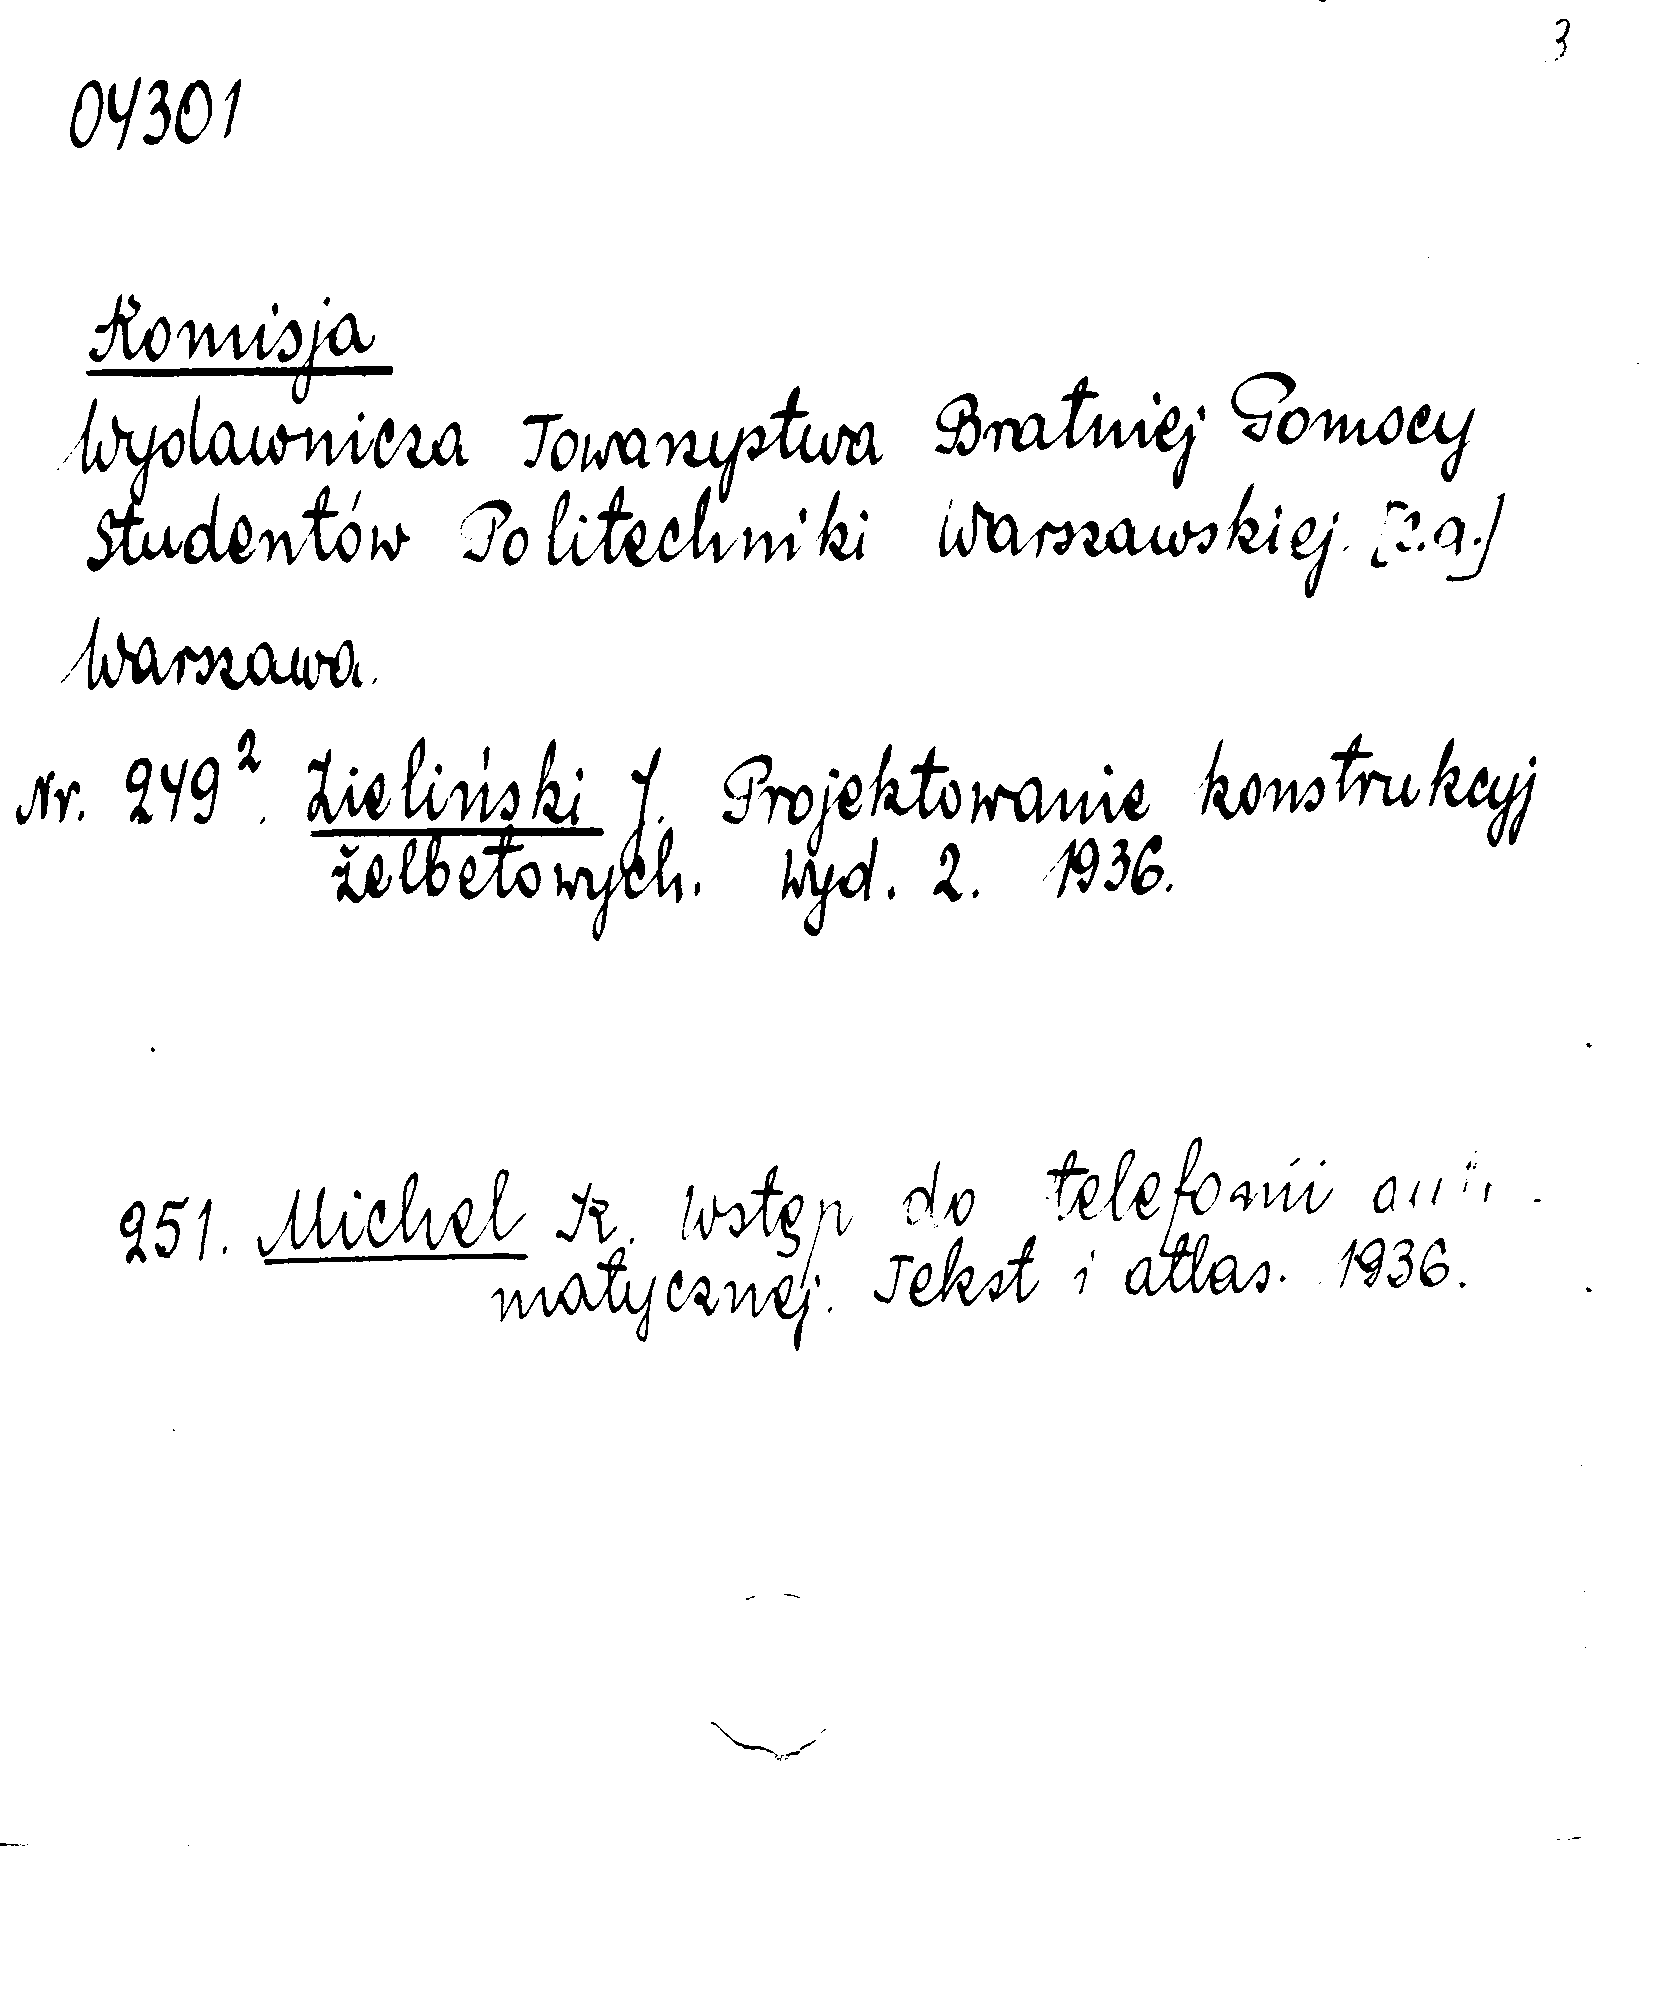 3
04301
Komisja
Wydawnicza Towarzystwa Bratniej Pomocy
Studentów Politechniki Warszawskiej. [s.a.]
Warszawa.
Nr. 249². Zieliński J. Projektowanie konstrukcyj
żelbetowych. Wyd. 2. 1936.
251. Michel K. Wstęp do telefonii
matycznej. Tekst i atlas. 1936.